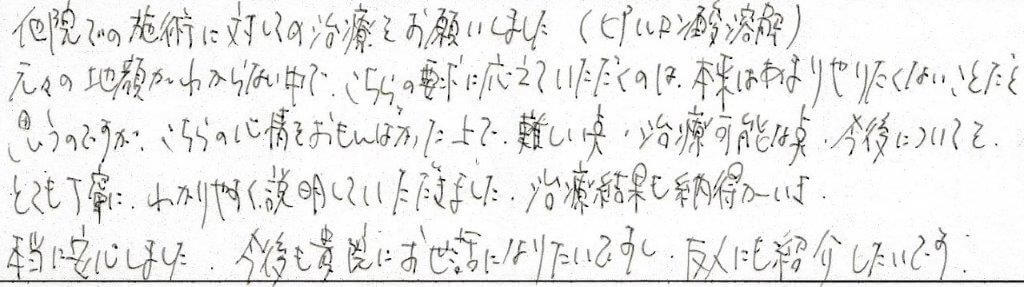 他院での施術に対しての治療をお願いしました（ヒアルロン酸溶解）
元々の地顔がわからない中で、こちらの要求に応えていただくのは、本来はあまりやりたくないことだと
思うのですが、こちらの心情をおもんばかった上で、難しい点・治療可能な点、今後についてを、
とても丁寧に、わかりやすく説明していただきました。治療結果も納得がいき、
本当に安心しました。今後も貴院にお世話になりたいですし、友人にも紹介したいです。